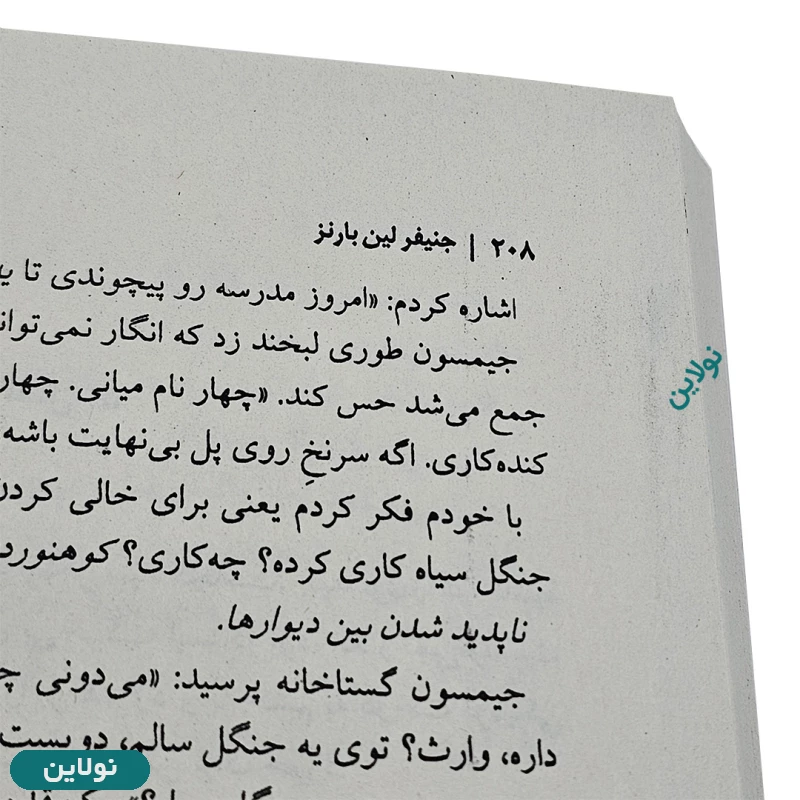 ۲۰۸ | جنیفر لین بارنز
اشاره کردم: «امروز مدرسه رو پیچوندی تا
جیمسون طوری لبخند زد که انگار
جمع می‌شد حس کند. «چهار نام میانی. چهار
کنده‌کاری. اگه سرنخِ روی پل بی‌نهایت باشه
با خودم فکر کردم یعنی برای خالی
جنگل سیاه کاری کرده؟ چه‌کاری؟
ناپدید شدن بین دیوارها.
جیمسون گستاخانه پرسید: «می‌دونی
داره، وارث؟ توی یه جنگل سالم، دویست
نولاین
نولاین